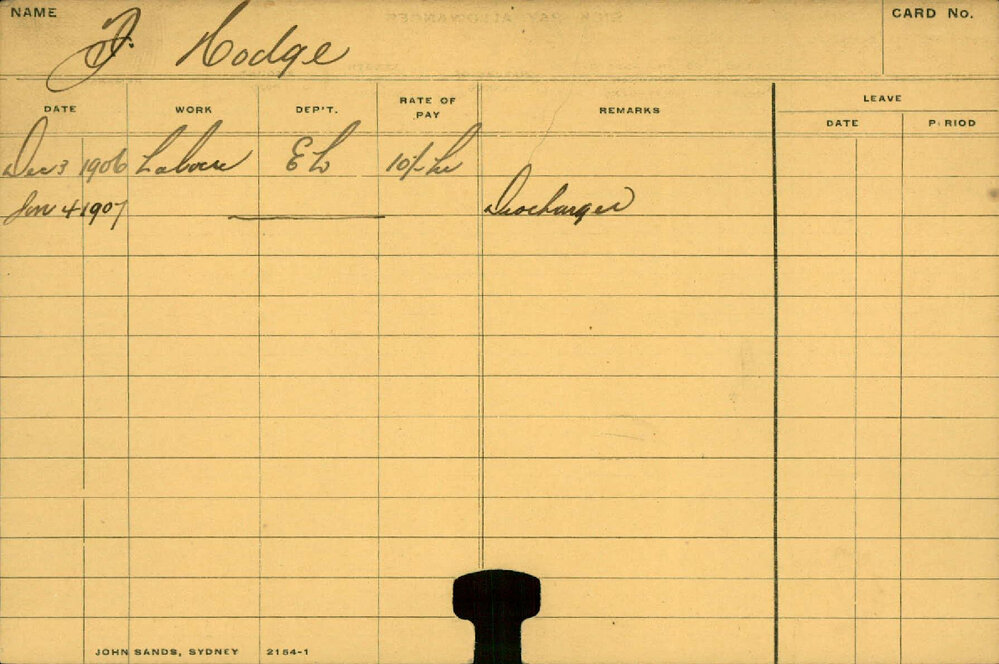 NAME
CARD No.
Hodge
DATE WORK DEP'T. RATE OF PAY REMARKS LEAVE
DATE PERIOD
Dec 3 1906 Labour E L 10/-
Jan 4 1907 Discharged
JOHN SANDS, SYDNEY 2154-1